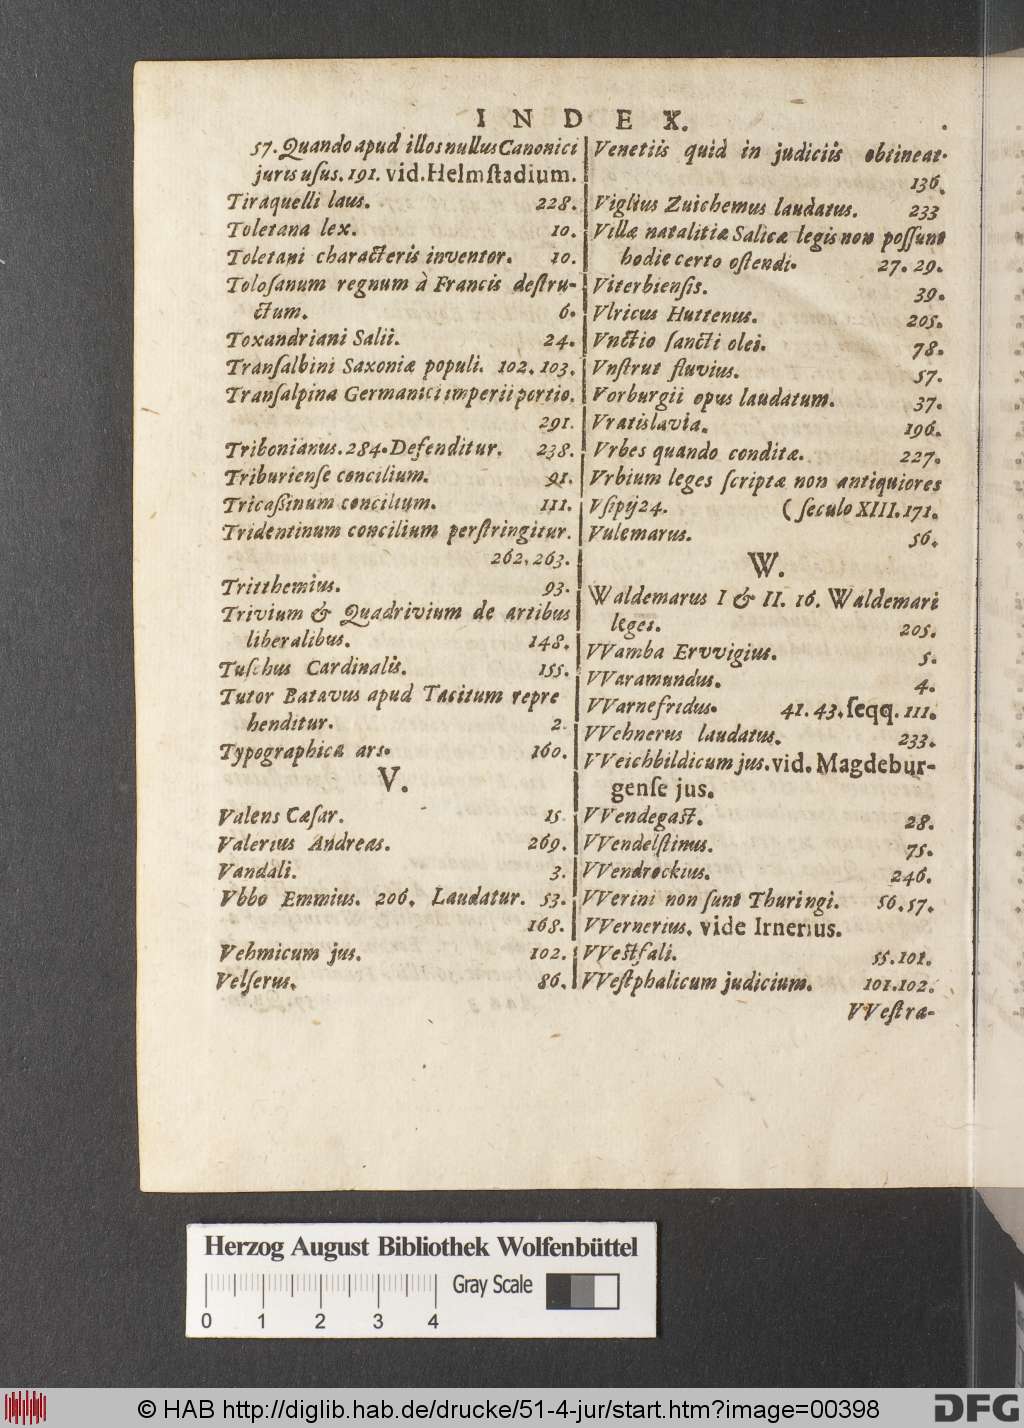 INDEX.
57. Quando apud illos nullus Canonici
juris uſus. 191. vid. Helmſtadium.
Tiraquelli laus. 228.
Toletana lex. 10.
Toletani characteris inventor. 10.
Toloſanum regnum à Francis deſtru-
ctum. 6.
Toxandriani Salii. 24.
Tranſalbini Saxoniæ populi. 102. 103.
Tranſalpina Germanici imperii portio.
291.
Tribonianus. 284. Defenditur. 238.
Triburienſe concilium. 91.
Tricaßinum concilium. 111.
Tridentinum concilium perſtringitur.
262. 263.
Tritthemius. 93.
Trivium & Quadrivium de artibus
liberalibus. 148.
Tuſchus Cardinalis. 155.
Tutor Batavus apud Tacitum repre
henditur. 2
Typographica ars. 160.
V.
Valens Cæſar. 15
Valerius Andreas. 269.
Vandali. 3.
Vbbo Emmius. 206. Laudatur. 53.
168.
Vehmicum jus. 102.
Velſerus. 86.
Venetiis quid in judiciis obtineat.
136.
Viglius Zuichemus laudatus. 233
Villæ natalitiæ Salicæ legis non poſſunt
hodie certo oſtendi. 27. 29.
Viterbienſis. 39.
Vlricus Huttenus. 205.
Vnctio ſancti olei. 78.
Vnſtrut fluvius. 57.
Vorburgii opus laudatum. 37.
Vratislavia. 196.
Vrbes quando conditæ. 227.
Vrbium leges ſcriptæ non antiquiores
Vſipij 24. ( ſeculo XIII. 171.
Vulemarus. 56.
W.
Waldemarus I & II. 16. Waldemari
leges. 205.
VVamba Ervvigius. 5.
VVaramundus. 4.
VVarnefridus. 41. 43. ſeqq. 111.
VVehnerus laudatus. 233.
VVeichbildicum jus. vid. Magdebur-
genſe jus.
VVendegaſt. 28.
VVendelſtinus. 75.
VVendrockius. 246.
VVerini non ſunt Thuringi. 56. 57.
VVernerius. vide Irnerius.
VVeſtfali. 55. 101.
VVeſtphalicum judicium. 101. 102.
VVeſtra-
Herzog August Bibliothek Wolfenbüttel
Gray Scale
0 1 2 3 4
© HAB http://diglib.hab.de/drucke/51-4-jur/start.htm?image=00398
DFG